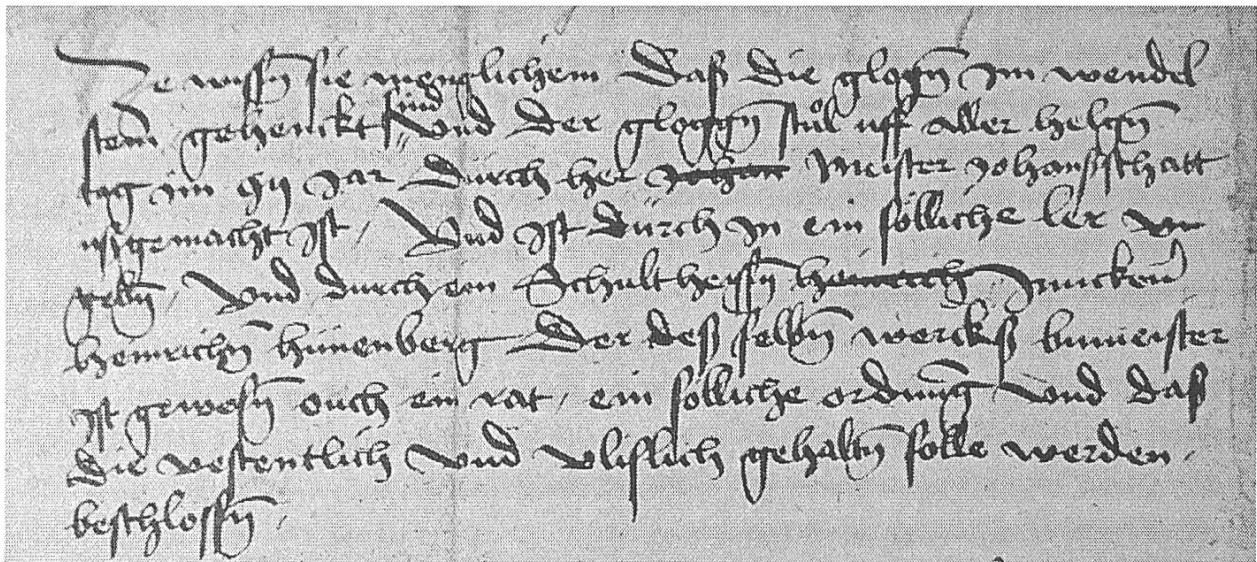 Ze wissen sie menglichem Das die gloggen Im wendel
stein gehenckt sind Und der gloggen stůl uff Aller helgen
tag im Jar durch her Johan Meister Johans schatt
ussgemacht Ist / Und Ist durch In ein sölliche ler
geben / Und durch ein Schultheissen heinrich
heinrichen hünenberg Der des selben wercks bumeister
Ist gewesen ouch ein rat / ein sölliche ordnung Und das
die vestentlich Und vlislich gehalten solle werden /
beschlossen /